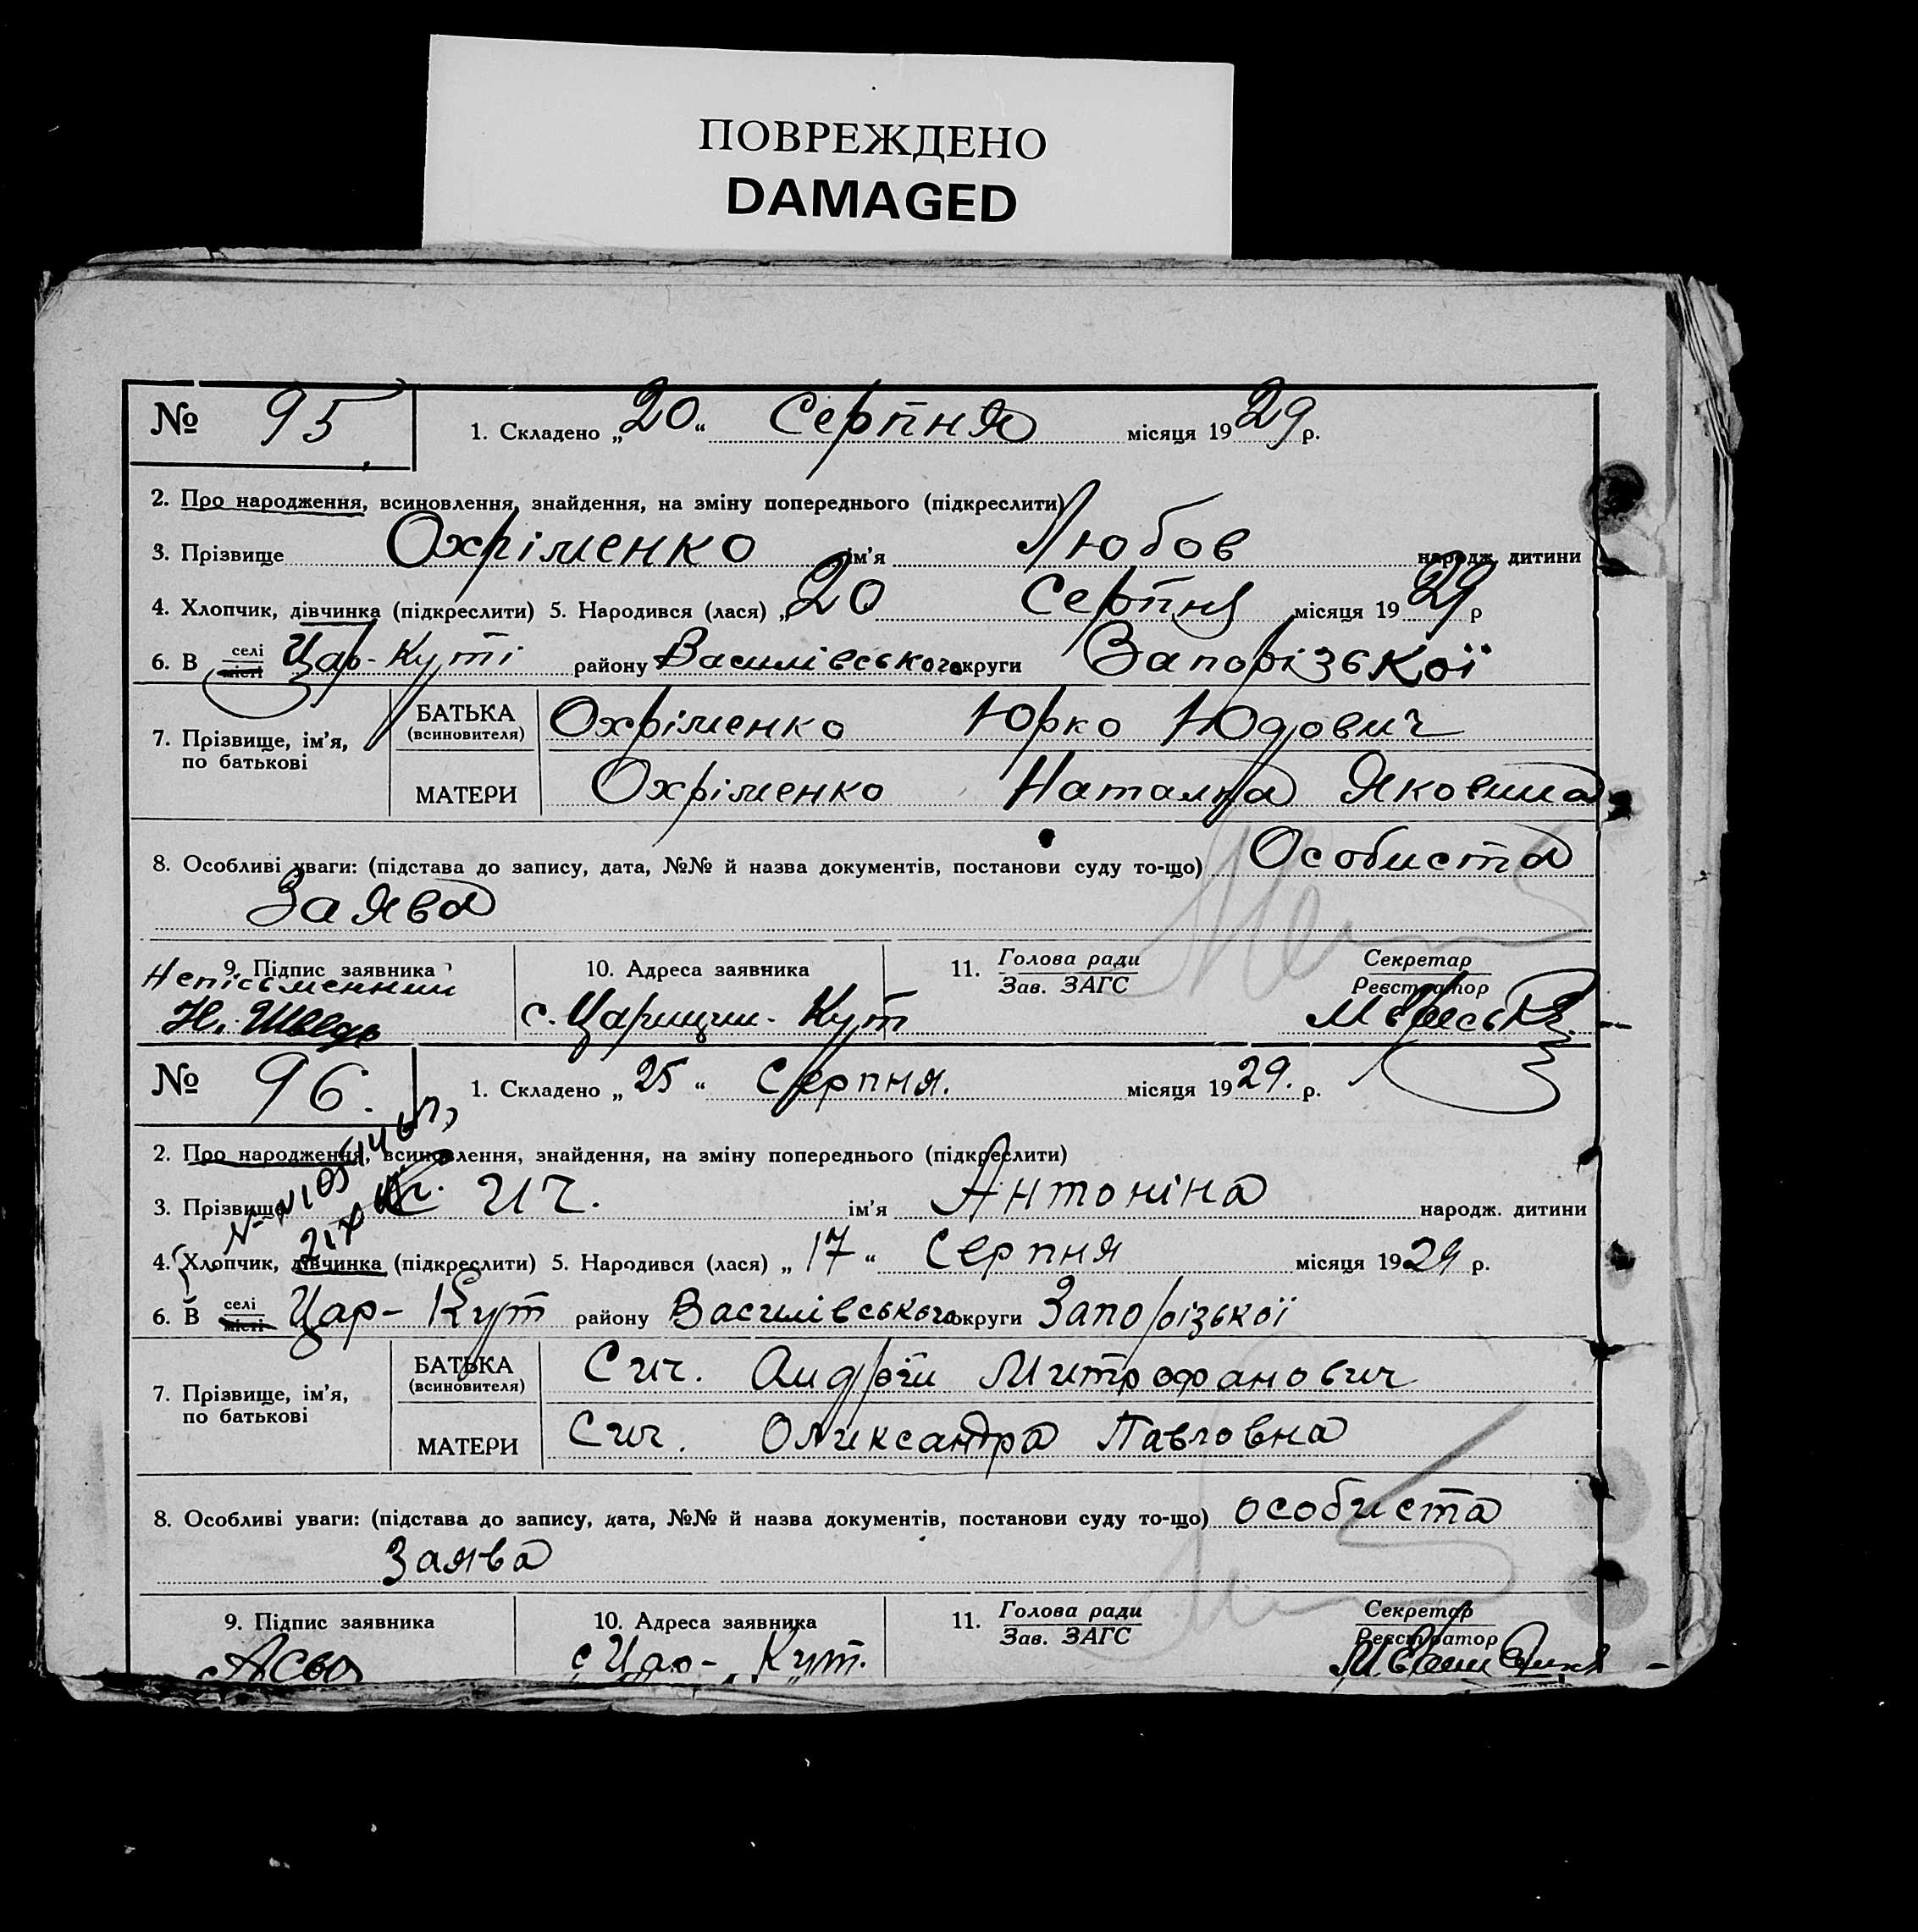 ПОВРЕЖДЕНО
DAMAGED
№ 95
1. Складено „20“ Серпня місяця 1929 р.
2. Про народження, всиновлення, знайдення, на зміну попереднього (підкреслити)
3. Прізвище Охріменко ім'я Любов народж. дитини
4. Хлопчик, дівчинка (підкреслити) 5. Народився (лася) „20 Серпня місяця 1929 р
6. В селі місті Цар-Куті району Василівського округи Запорізької
7. Прізвище, ім'я, по батькові
БАТЬКА (всиновителя) Охріменко Юрко Юдович
МАТЕРИ Охріменко Наталка Яковина
8. Особливі уваги: (підстава до запису, дата, №№ й назва документів, постанови суду то-що) Особиста
Заява
9. Підпис заявника
Непісьменний
10. Адреса заявника
с. Царицин-Кут
11. Голова ради
Зав. ЗАГС
Секретар
Реєстратор
№ 96.
1. Складено „25“ Серпня. місяця 1929. р.
2. Про народження, всиновлення, знайдення, на зміну попереднього (підкреслити)
3. Прізвище Сич. ім'я Антоніна народж. дитини
4. Хлопчик, дівчинка (підкреслити) 5. Народився (лася) „17“ Серпня місяця 1929 р.
6. В селі місті Цар-Кут району Василівського округи Запорізької
7. Прізвище, ім'я, по батькові
БАТЬКА (всиновителя) Сич. Андрій Митрофанович
МАТЕРИ Сич. Олександра Павловна
8. Особливі уваги: (підстава до запису, дата, №№ й назва документів, постанови суду то-що) особиста
Заява
9. Підпис заявника
10. Адреса заявника
с Цар-Кут.
11. Голова ради
Зав. ЗАГС
Секретар
Реєстратор